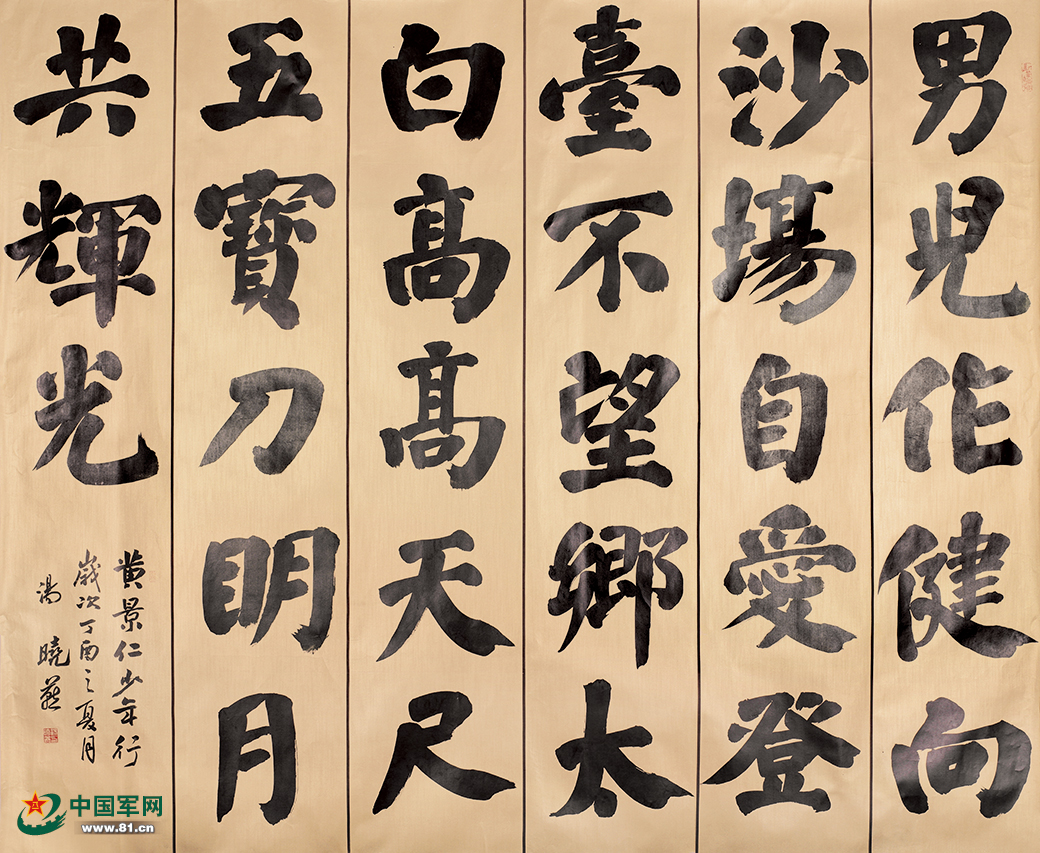 男兒作健向
沙場自愛登
臺不望鄉太
白高高天尺
五寶刀明月
共輝光
黄景仁少年行
歲次丁酉之夏月
湯曉燕
中国军网
www.81.cn